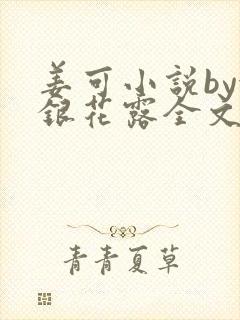 姜可小説by
銀花露全文
青青夏草